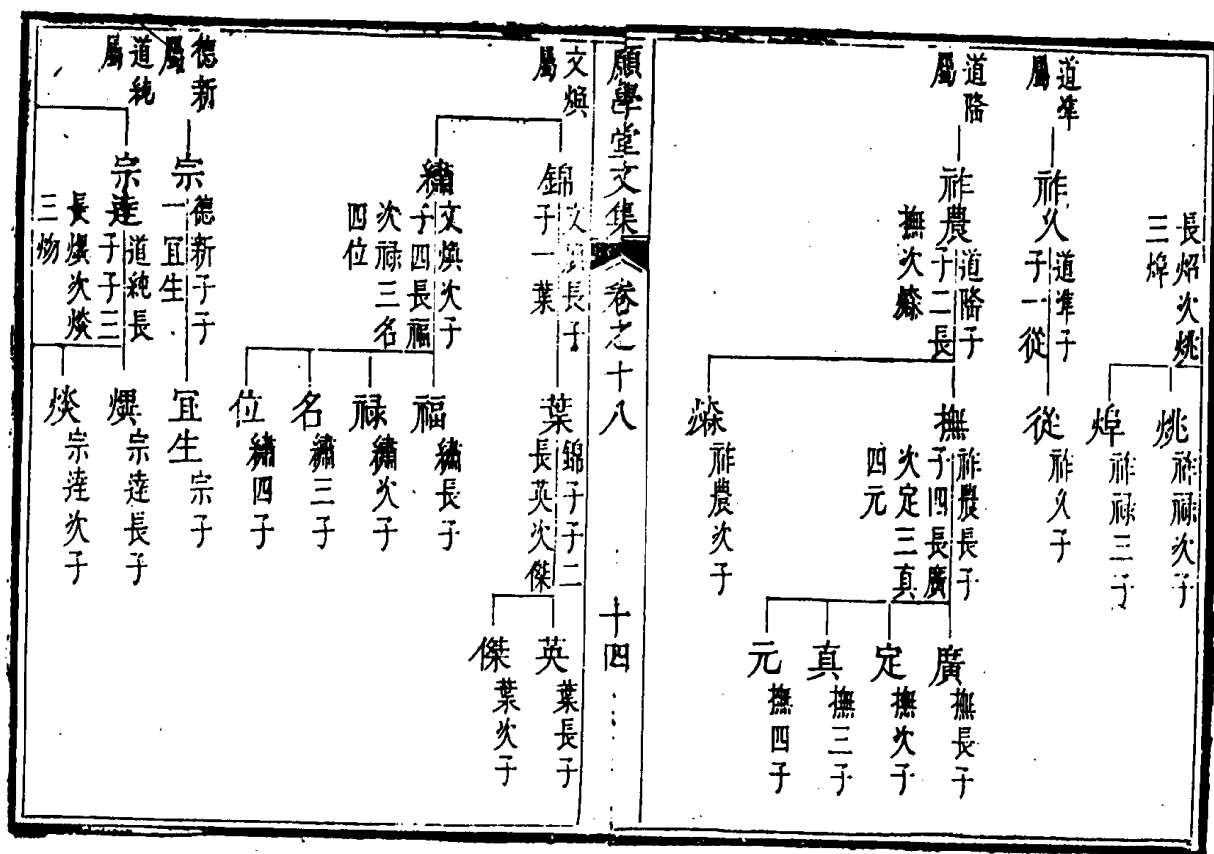 長炤次烑
三焯
烑祚禄次子
焯祚禄三子
道準
屬
祚久道準子
子一從
從祚久子
道隆
屬
祚農道隆子
子二長
撫次㷹
撫祚農長子
子四長廣
次定三真
四元
祚農次子
廣撫長子
定撫次子
真撫三子
元撫四子
願學堂文集
卷之十八
十四
文煥
屬
錦文煥長子
子一葉
葉錦子子二
長英次傑
英葉長子
傑葉次子
繡文煥次子
子四長福
次禄三名
四位
福繡長子
禄繡次子
名繡三子
位繡四子
德新
屬
宗德新子子
一宜生
宜生宗子
道純
屬
宗逵道純長
子子三
長熼次燚
三炀
宗逵長子
宗逵次子